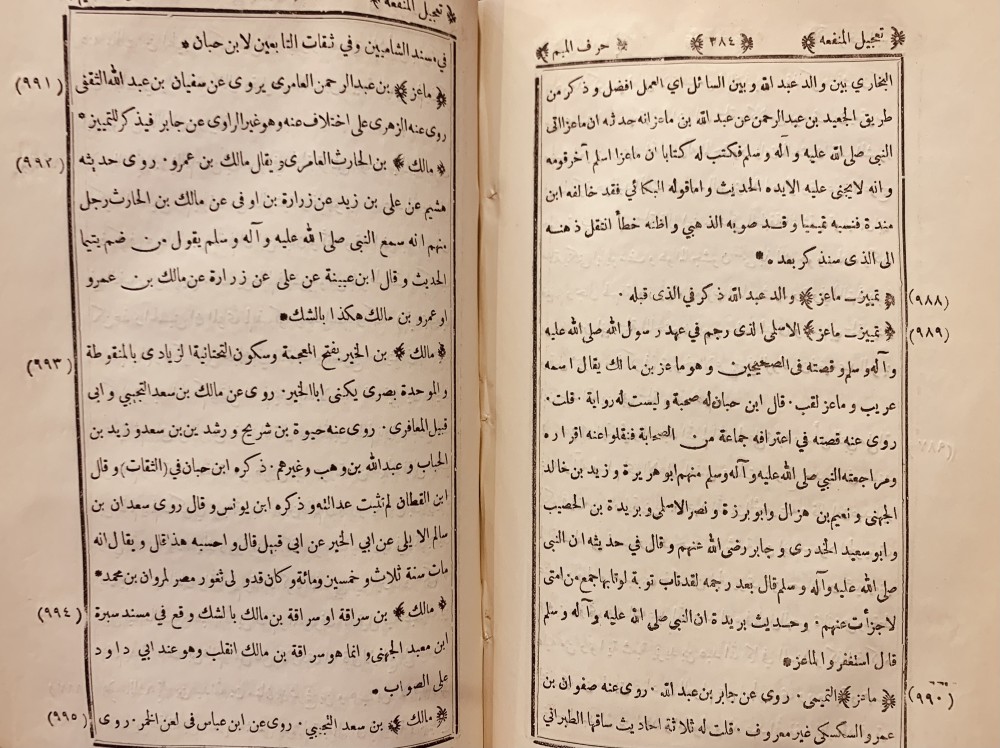 تعجيل المنفعه
٣٨٤
حرف الميم
البخارى بين والد عبد الله وبين السائل اى العمل افضل وذكر من
طريق الجعيد بن عبد الرحمن عن عبد الله بن ماعز انه حدثه ان ماعزا اتى
النبى صلى الله عليه وآله وسلم فكتب له كتابا ان ماعزا اسلم آخر قومه
وانه لا يجنى عليه الا يده الحديث واما قوله البكائي فقد خالفه ابن
مندة فنسبه تميميا وقد صوبه الذهبي واظنه خطأ انتقل ذهنه
الى الذى سنذكر بعده *
(٩٨٨) ﴿ تمييز ــ ماعز ﴾ والد عبد الله ذكر فى الذى قبله ٠
(٩٨٩) ﴿ تمييز ــ ماعز ﴾ الاسلمى الذى رجم فى عهد رسول الله صلى الله عليه
وآله وسلم وقصته فى الصحيحين وهو ماعز بن مالك يقال اسمه
عريب وماعز لقب ٠ قال ابن حبان له صحبة وليست له رواية ٠ قلت ٠
روى عنه قصته في اعترافه جماعة من الصحابة فنقلوا عنه اقراره
ومراجعته النبي صلى الله عليه وآله وسلم منهم ابو هريرة وزيد بن خالد
الجهنى ونعيم بن هزال وابو برزة ونصر الاسلمى وبريدة بن الحصيب
وابو سعيد الخدرى وجابر رضى الله عنهم وقال في حديثه ان النبى
صلى الله عليه وآله وسلم قال بعد رجمه لقد تاب توبة لو تابها جمع من امتى
لاجزأت عنهم ٠ وحديث بريدة ان النبى صلى الله عليه وآله وسلم
قال استغفروا لماعز *
(٩٩٠) ﴿ ماعز ﴾ التميمى ٠ روى عن جابر بن عبد الله ٠ روى عنه صفوان بن
عمرو السكسكى غير معروف ٠ قلت له ثلاثة احاديث ساقها الطبرانى
تعجيل المنفعه
فى مسند الشاميين وفي ثقات التابعين لابن حبان *
(٩٩١) ﴿ ماعز ﴾ بن عبد الرحمن العامرى يروى عن سفيان بن عبد الله الثقفى
روى عنه الزهرى على اختلاف عنه وهو غير الراوى عن جابر فيذكر للتمييز *
(٩٩٢) ﴿ مالك ﴾ بن الحارث العامرى ويقال مالك بن عمرو ٠ روى حديثه
هشيم عن على بن زيد عن زرارة بن اوفى عن مالك بن الحارث رجل
منهم انه سمع النبى صلى الله عليه وآله وسلم يقول من ضم يتيما
الحديث وقال ابن عيينة عن على عن زرارة عن مالك بن عمرو
او عمرو بن مالك هكذا بالشك *
(٩٩٣) ﴿ مالك ﴾ بن الخير بفتح المعجمة وسكون التحتانية الزيادى بالمنقوطة
والموحدة بصرى يكنى ابا الخير ٠ روى عن مالك بن سعد التجيبي وابى
قبيل المعافرى ٠ روى عنه حيوة بن شريح ورشدين بن سعد وزيد بن
الحباب وعبد الله بن وهب وغيرهم ٠ ذكره ابن حبان في (الثقات) وقال
ابن القطان لم تثبت عدالته وذكره ابن يونس وقال روى سعدان بن
سالم الايلى عن ابى الخير عن ابى قبيل قال واحسبه هذا قال ويقال انه
مات سنة ثلاث وخمسين ومائة وكان قد ولى ثغور مصر لمروان بن محمد *
(٩٩٤) ﴿ مالك ﴾ بن سراقة او سراقة بن مالك بالشك وقع في مسند سبرة
ابن معبد الجهنى وانما هو سراقة بن مالك انقلب وهو عند ابى داود
على الصواب *
(٩٩٥) ﴿ مالك ﴾ بن سعد التجيبى ٠ روى عن ابن عباس فى لعن الخمر ٠ روى